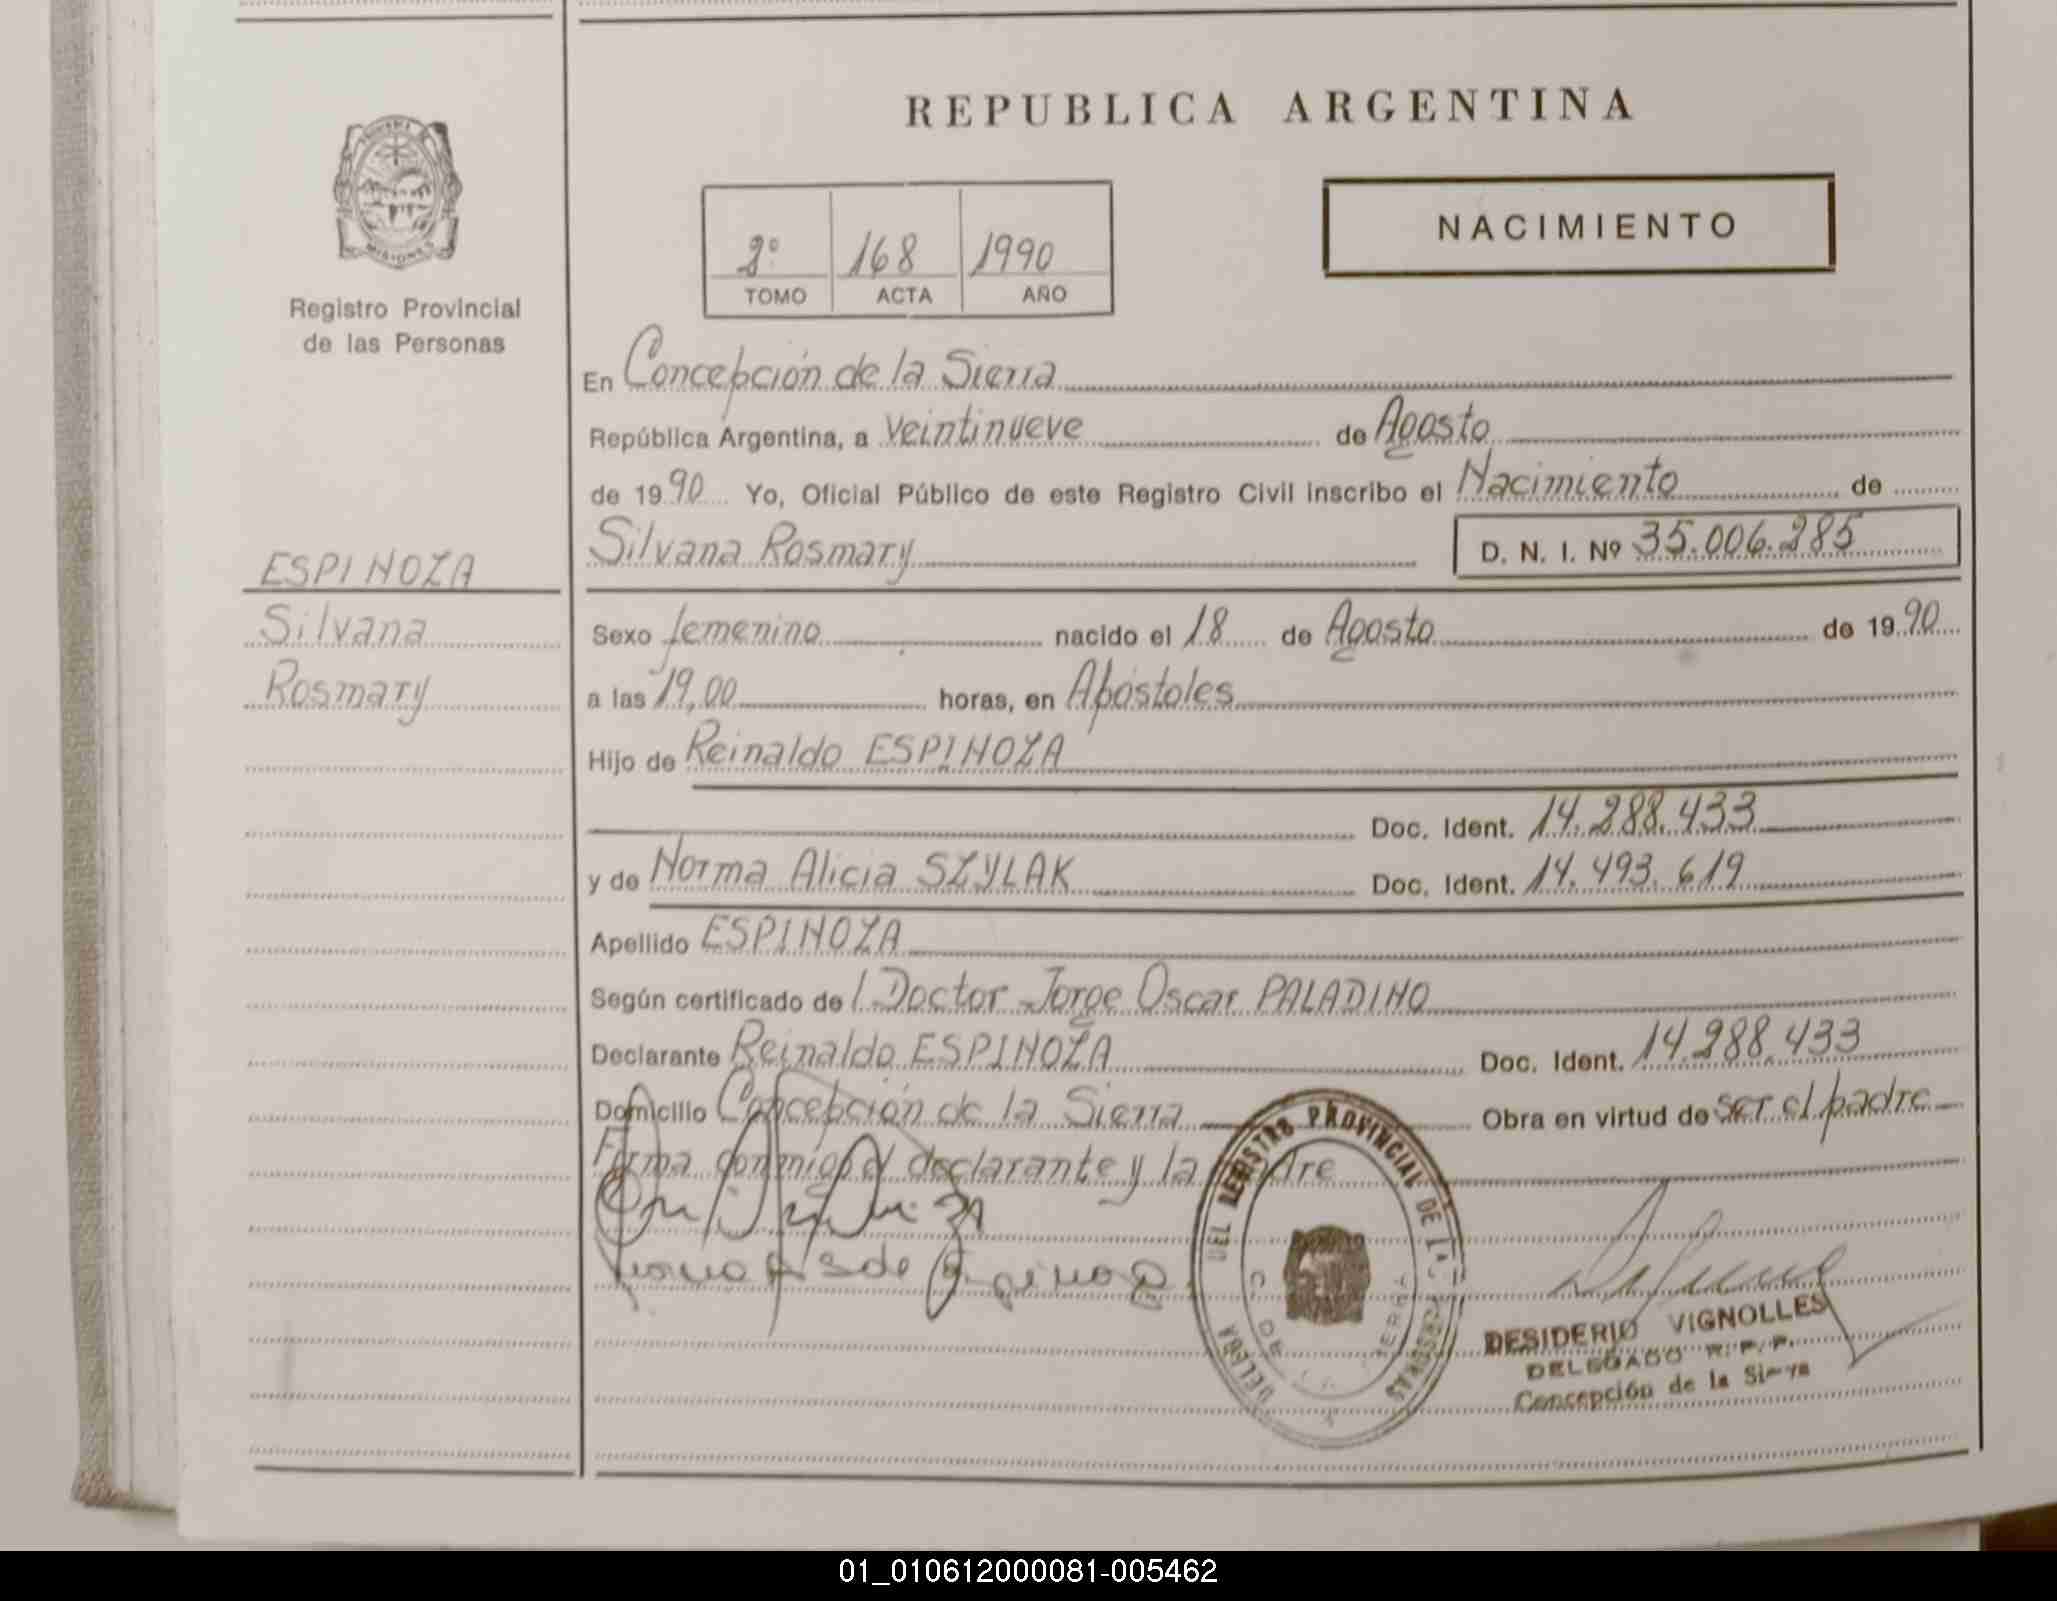 REPUBLICA ARGENTINA
MISIONES
Registro Provincial
de las Personas
2º 168 1990
TOMO ACTA AÑO
NACIMIENTO
En Concepción de la Sierra
República Argentina, a veintinueve de Agosto
de 1990 Yo, Oficial Público de este Registro Civil inscribo el Nacimiento de
Silvana Rosmary D. N. I. Nº 35.006.285
ESPINOZA
Silvana
Rosmary
Sexo femenino nacido el 18 de Agosto de 1990
a las 19,00 horas, en Apóstoles
Hijo de Reinaldo ESPINOZA
Doc. Ident. 14.288.433
y de Norma Alicia SZYLAK Doc. Ident. 14.493.619
Apellido ESPINOZA
Según certificado del Doctor Jorge Oscar PALADINO
Declarante Reinaldo ESPINOZA Doc. Ident. 14.288.433
Domicilio Concepción de la Sierra Obra en virtud de ser el padre
Firma conmigo el declarante y la
DEL REGISTRO PROVINCIAL DE
DESIDERIO VIGNOLLES
DELEGADO R. P. P.
Concepción de la Sierra
01_010612000081-005462